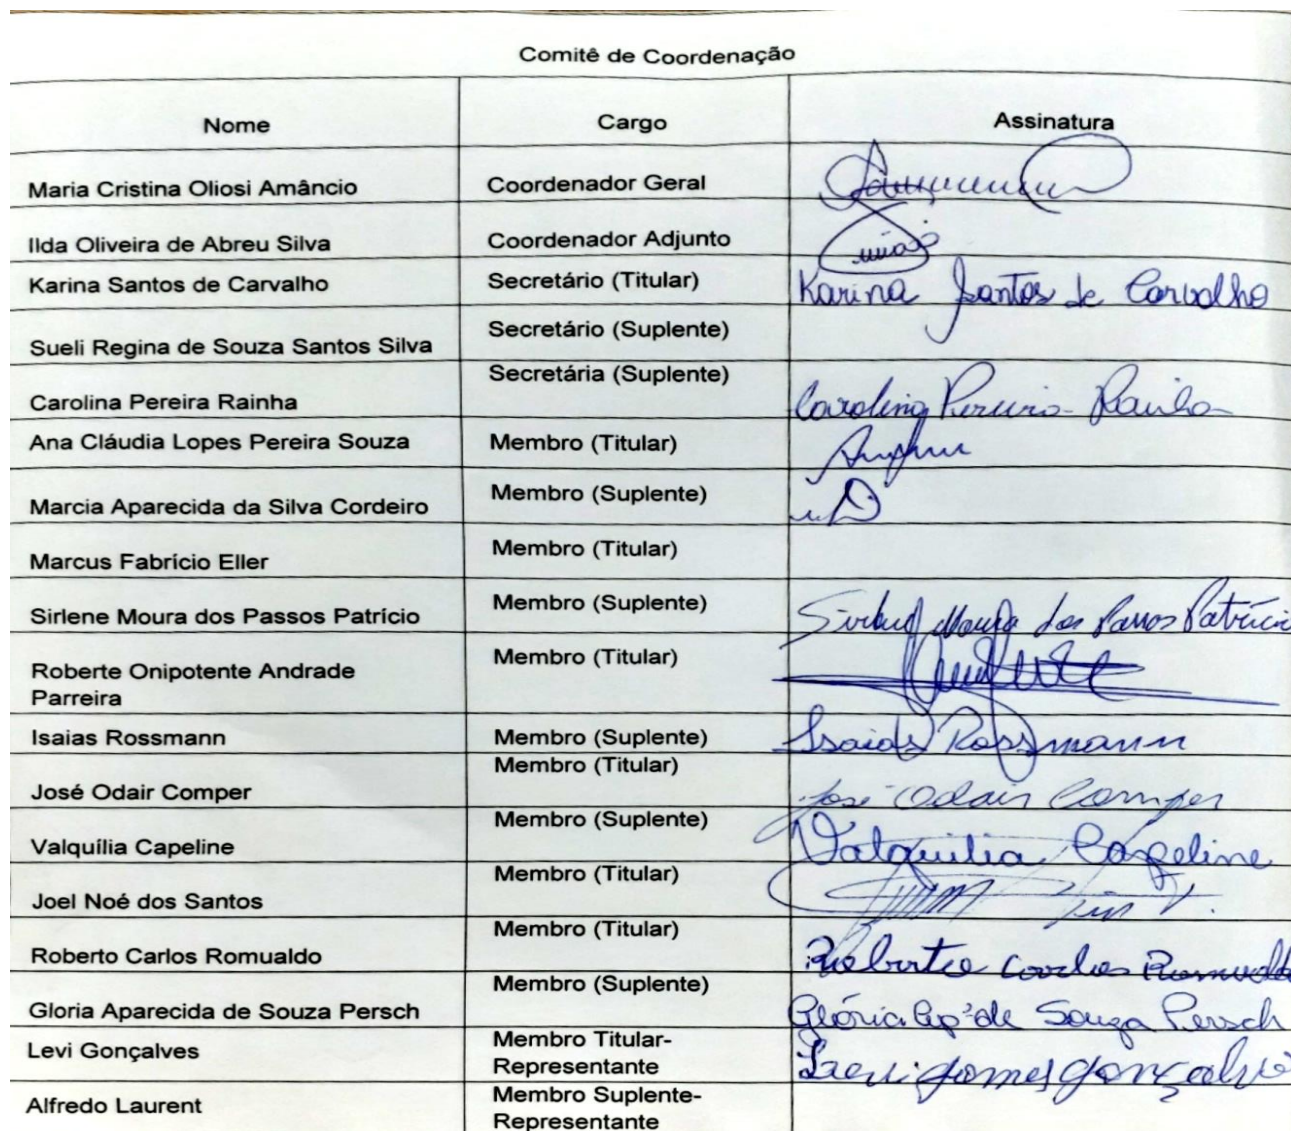 Comitê de Coordenação
Nome Cargo Assinatura
Maria Cristina Oliosi Amâncio Coordenador Geral
Ilda Oliveira de Abreu Silva Coordenador Adjunto
Karina Santos de Carvalho Secretário (Titular) Karina Santos de Carvalho
Sueli Regina de Souza Santos Silva Secretário (Suplente)
Carolina Pereira Rainha Secretária (Suplente) Carolina Pereira Rainha
Ana Cláudia Lopes Pereira Souza Membro (Titular)
Marcia Aparecida da Silva Cordeiro Membro (Suplente)
Marcus Fabrício Eller Membro (Titular)
Sirlene Moura dos Passos Patrício Membro (Suplente) Sirlene Moura dos Passos Patrício
Roberte Onipotente Andrade Membro (Titular)
Parreira
Isaias Rossmann Membro (Suplente) Isaias Rossmann
José Odair Comper Membro (Titular) José Odair Comper
Valquília Capeline Membro (Suplente) Valquilia Capeline
Joel Noé dos Santos Membro (Titular)
Roberto Carlos Romualdo Membro (Titular) Roberto Carlos Romualdo
Gloria Aparecida de Souza Persch Membro (Suplente) Glória Apª de Souza Persch
Levi Gonçalves Membro Titular- Levi Gomes Gonçalves
Representante
Alfredo Laurent Membro Suplente-
Representante